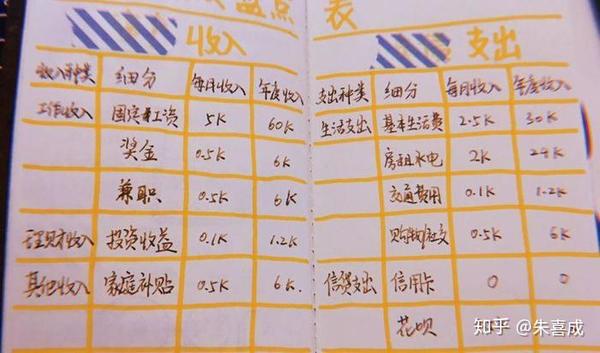 盘点 表
收入
收入种类 细分 每月收入 年度收入
工作收入 固定工资 5K 60K
奖金 0.5K 6K
兼职 0.5K 6K
理财收入 投资收益 0.1K 1.2K
其他收入 家庭补贴 0.5K 6K.
支出
支出种类 细分 每月收入 年度收入
生活支出 基本生活费 2.5K 30K
房租水电 2K 24K
交通费用 0.1K 1.2K
购物社交 0.5K 6K
信贷支出 信用卡 0 0
花呗
知乎 @朱喜成